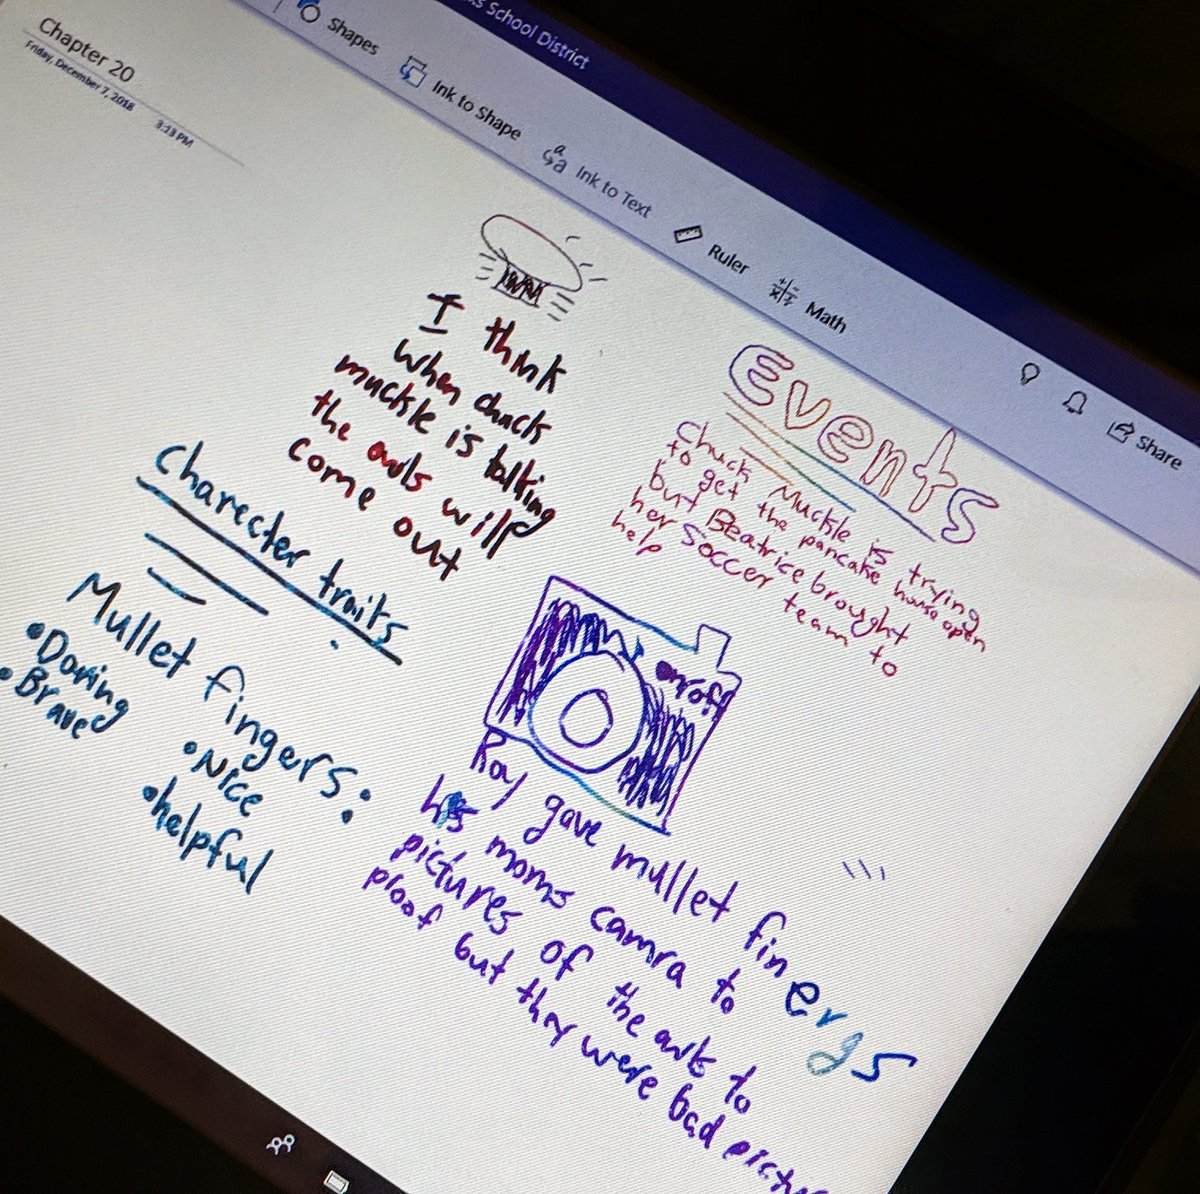 School District
Shapes
Ink to Shape
Ink to Text
Ruler
Math
Share
Chapter 20
Friday, December 7, 2018
3:13 PM
I think
when chuck
muckle is talking
the owls will
come out
Events
Chuck Muckle is trying
to get the pancake house open
but Beatrice brought
her soccer team to
help
charecter traits
Mullet fingers:
• Daring
• Brave
• Nice
• helpful
on/off
Roy gave mullet finergs
his moms camra to
pictures of the owls to
proof but they were bad